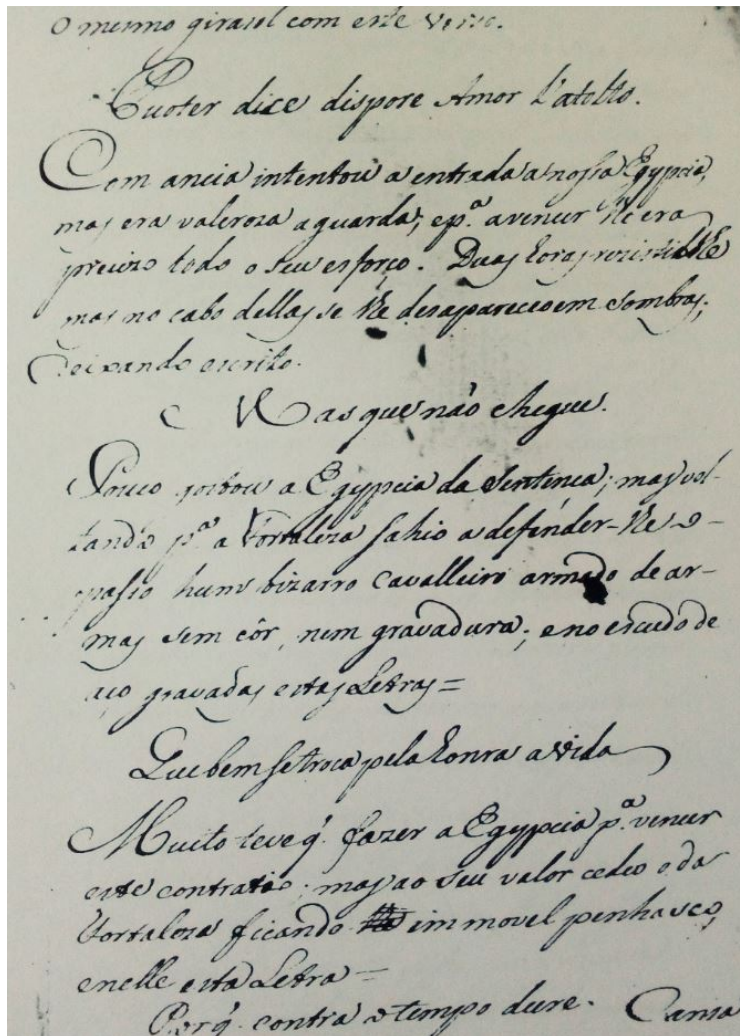 O mesmo girasol com este verso.
Puoter dice dispore Amor l'atolto.
Com ancia intentou a entrada a nossa Egypcia,
mas era valeroza a guarda, e p.ª a vencer lhe era
precizo todo o seu esforço. Duas horas rezistiolhe
mas no cabo dellas se lhe desapareceo em sombras,
deixando escrito.
Mas que não chegue.
Pouco gostou a Egypcia da Sentença; mas vol-
tando p.ª a Fortaleza sahio a defender-lhe o-
passo hum bizarro Cavalleiro armado de ar-
mas sem côr, nem gravadura; e no escudo de
aço gravadas estas Letras=
Que bem se troca pela honra a vida
Muito teve q̃. fazer a Egypcia p.ª vencer
este contratio; mas ao seu valor cedeo o da
Fortaleza ficando immovel penhasco,
e nelle esta Letra=
Porq̃. contra o tempo dure. Cansa